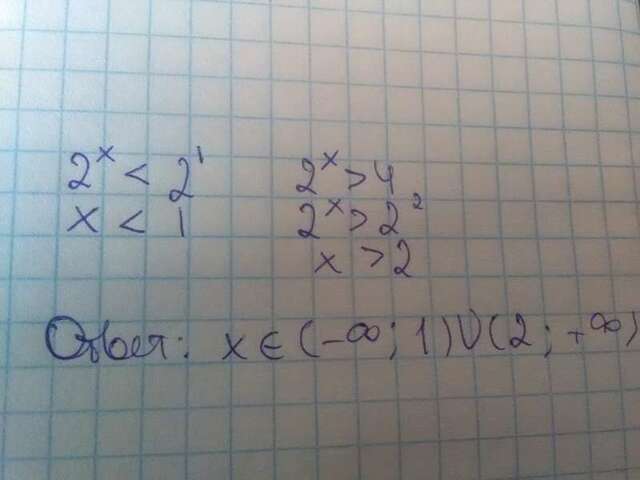 2^x < 2^1
x < 1
2^x > 4
2^x > 2^2
x > 2
Ответ: x ∈ (-∞; 1) U (2; +∞)